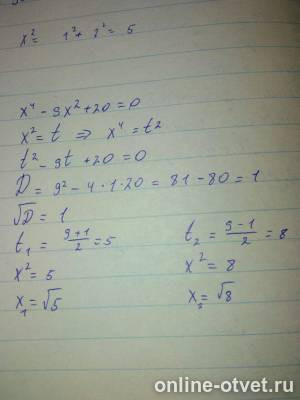 x² = 1² + 2² = 5
x⁴ - 9x² + 20 = 0
x² = t ⇒ x⁴ = t²
t² - 9t + 20 = 0
D = 9² - 4·1·20 = 81 - 80 = 1
√D = 1
t₁ = (9+1)/2 = 5 t₂ = (9-1)/2 = 8
x² = 5 x² = 8
x₁ = √5 x₂ = √8
online-otvet.ru